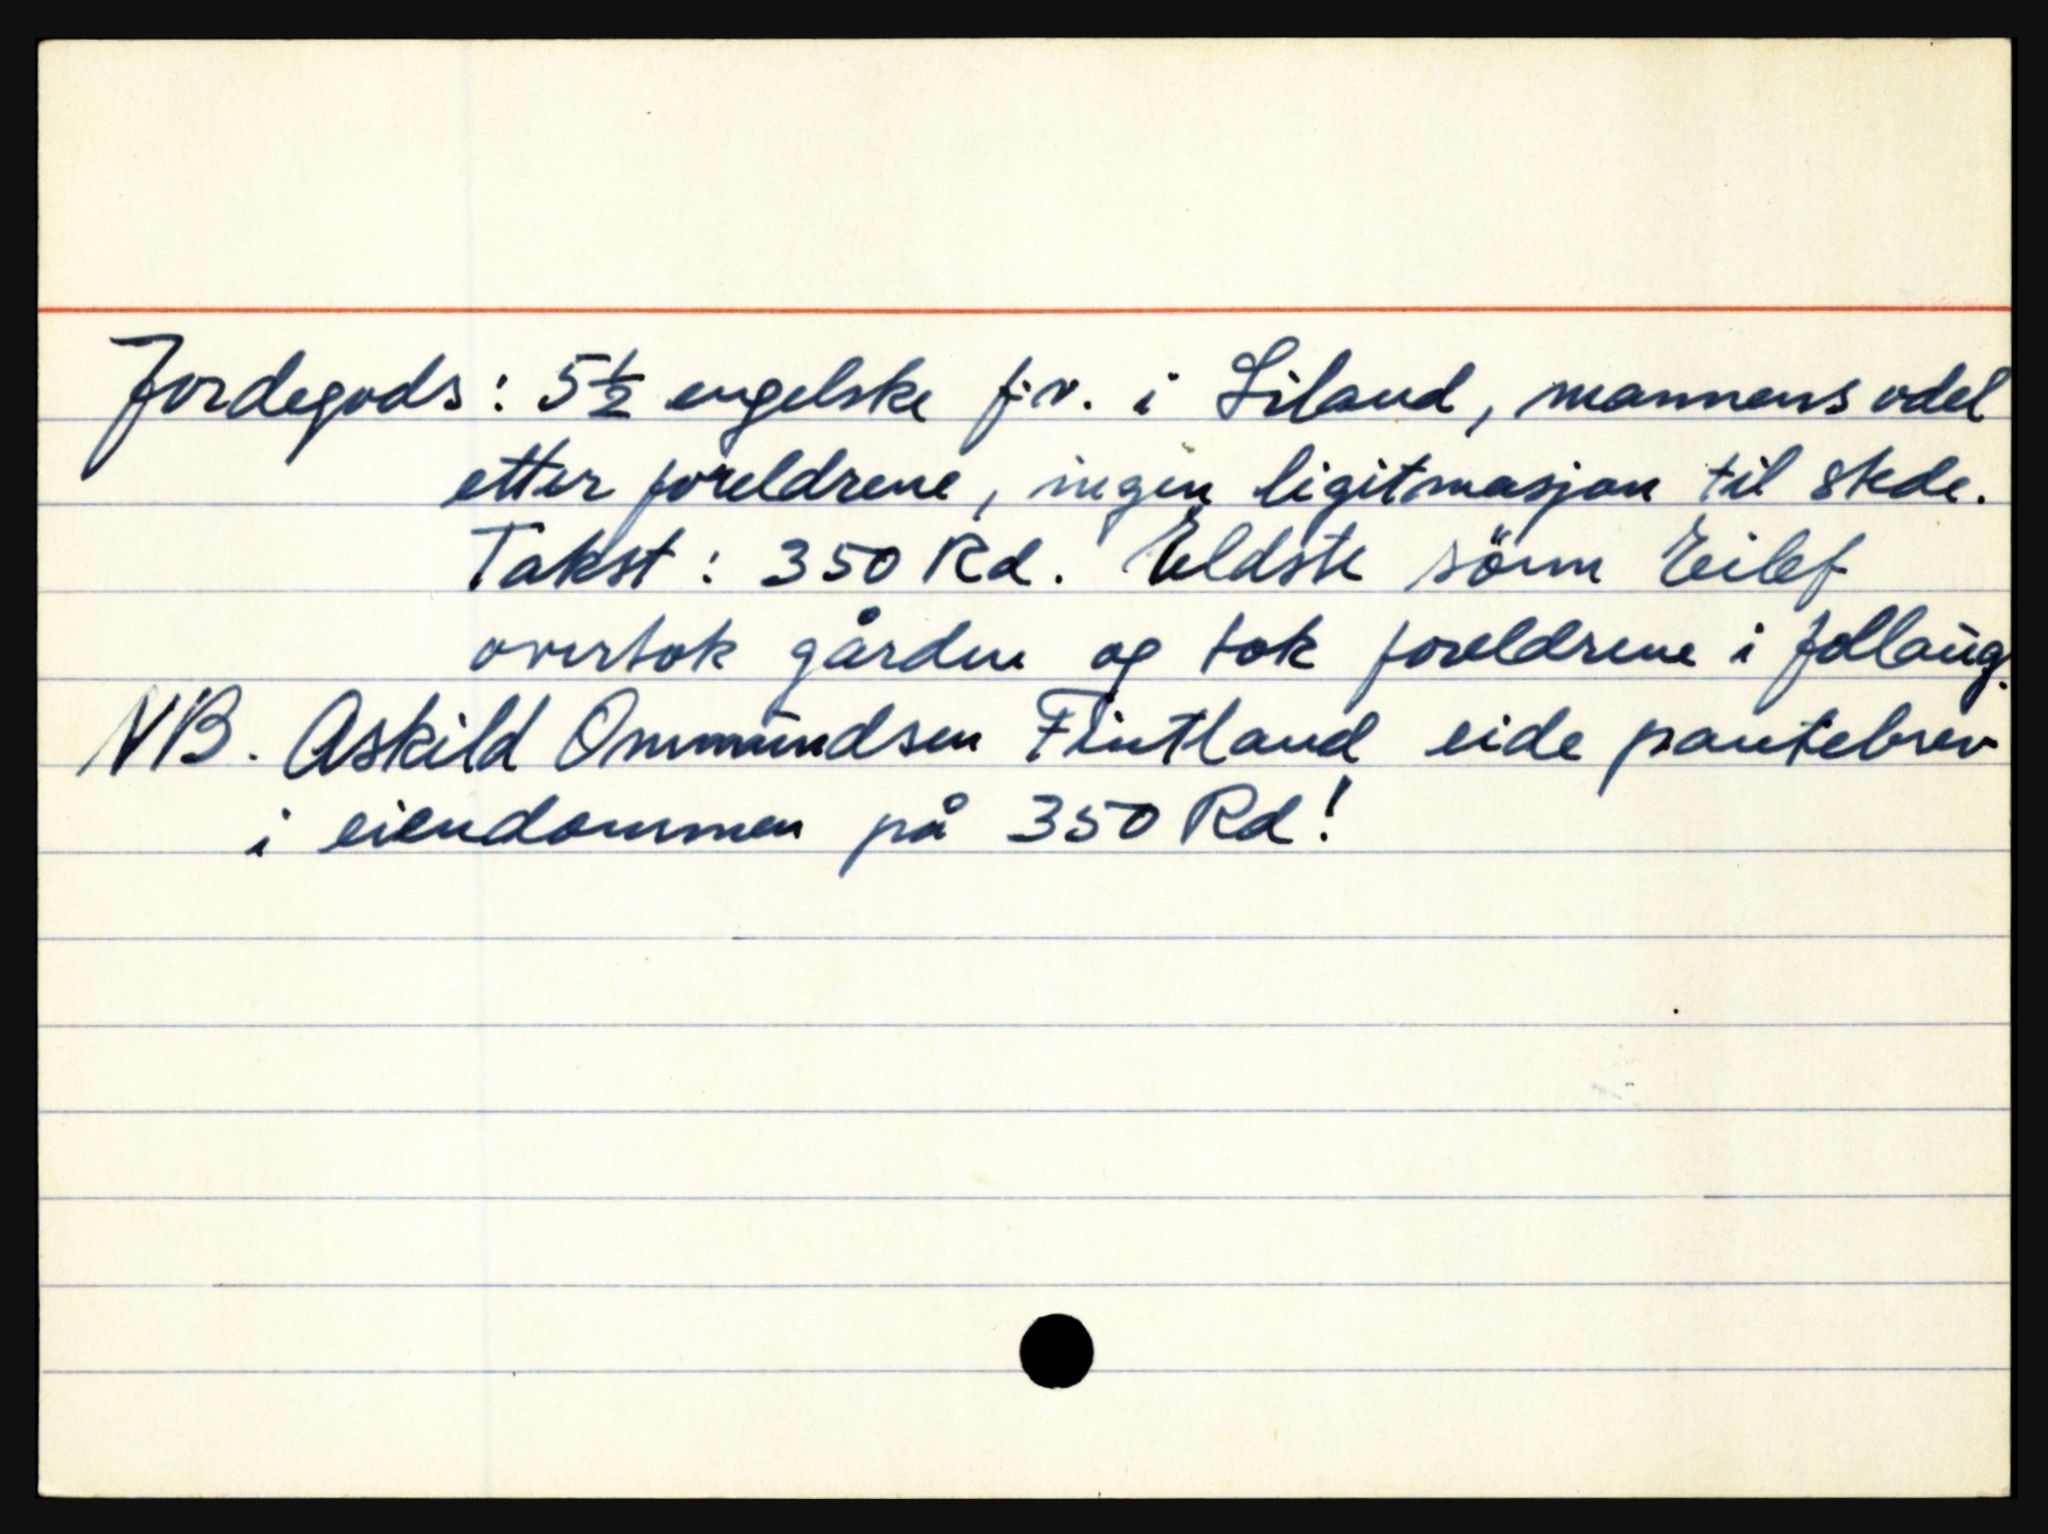 Jordegods: 5½ engelske j.v. i Liland, mannens odel
etter foreldrene, ingen ligitmasjon til stede.
Takst: 350 Rd. Eldste sönn Eilef
overtok gården og tok foreldrene i follaug.
NB. Askild Ommundsen Fintland eide pantebrev
i eiendommen på 350 Rd!